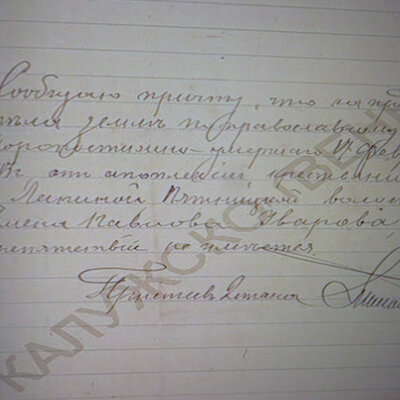 Сообщаю причту, что на пре
тѣла землѣ по православному
коропостижно-умершаго 17 Фев
от апоплексіи крестьяни
Лапиной Пятницкой волос
мена Павлова Уварова
непятствій не имѣется.
Пристав 2 стана
КАЛУЖСКО